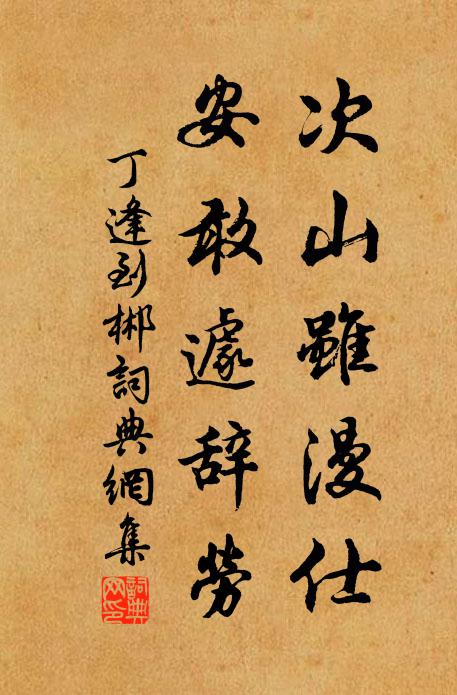 次山雖漫仕
安敢遽辞勞
丁逢到郴詞典網集
詞典網印